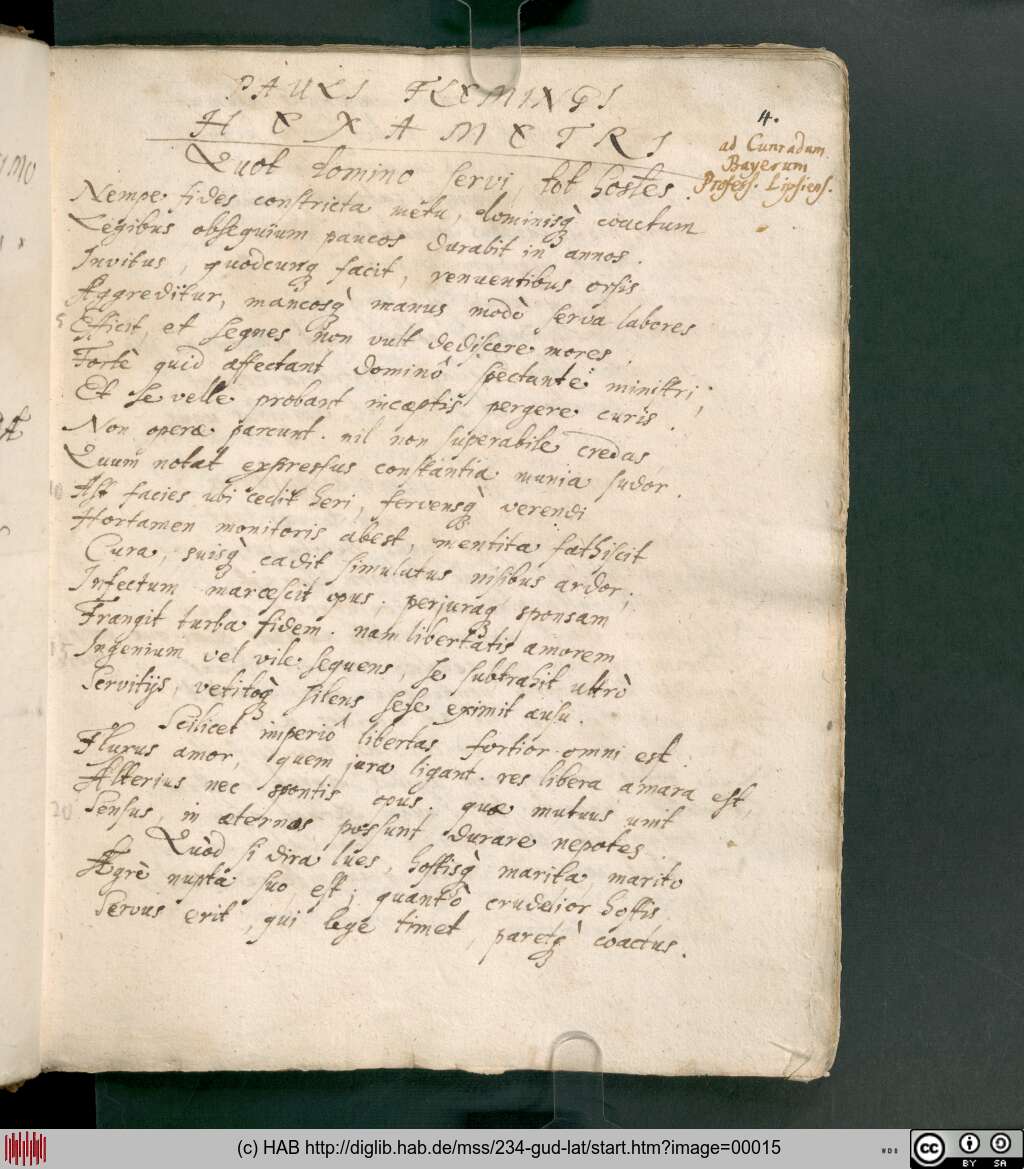 PAULI FLEMINGI
HEXAMETRI
4.
ad Cunradum
Bayerum
Profess. Lipsiens.
Quot domino servi, tot hostes.
Nempe fides constricta metu, dominisq́ꝫ coactum
Legibus obsequium paucos durabit in annos.
Invitus, quodcunqꝫ facit, renuentibus orsis
Aggreditur, mancosq́ꝫ manus modò serva labores
5 Efficit, et segnes non vult dediscere mores.
Fortè quid affectant dominô spectante ministri;
Et se velle probant incæptis pergere curis.
Non operæ parcunt. nil non superabile credas
Quum notat expressus constantia munia sudor.
10 Ast facies ubi cedit heri, fervensq́ꝫ verendi
Hortamen monitoris abest, mentita fathiscit
Cura, suisq́ꝫ cadit simulatus nisibus ardor;
Infectum marcescit opus; perjuraqꝫ sponsam
Frangit turba fidem. nam libertatis amorem
15 Ingenium vel vile sequens, se subtrahit ultrò
Servitijs, vetitoq́ꝫ sitens sese eximit ausu.
Scilicet imperiô libertas fortior omni est.
Flurus amor, quem jura ligant. res libera amara est,
Alterius nec spontis opus. quæ mutuus unit
20 Sensus, in æternos possunt durare nepotes.
Quòd si dira lues, hostisq́ꝫ marita, marito
Ægrè nupta suo est; quantò crudelior hostis
Servus erit, qui lege timet, paretq́ꝫ coactus.
(c) HAB http://diglib.hab.de/mss/234-gud-lat/start.htm?image=00015
cc BY SA